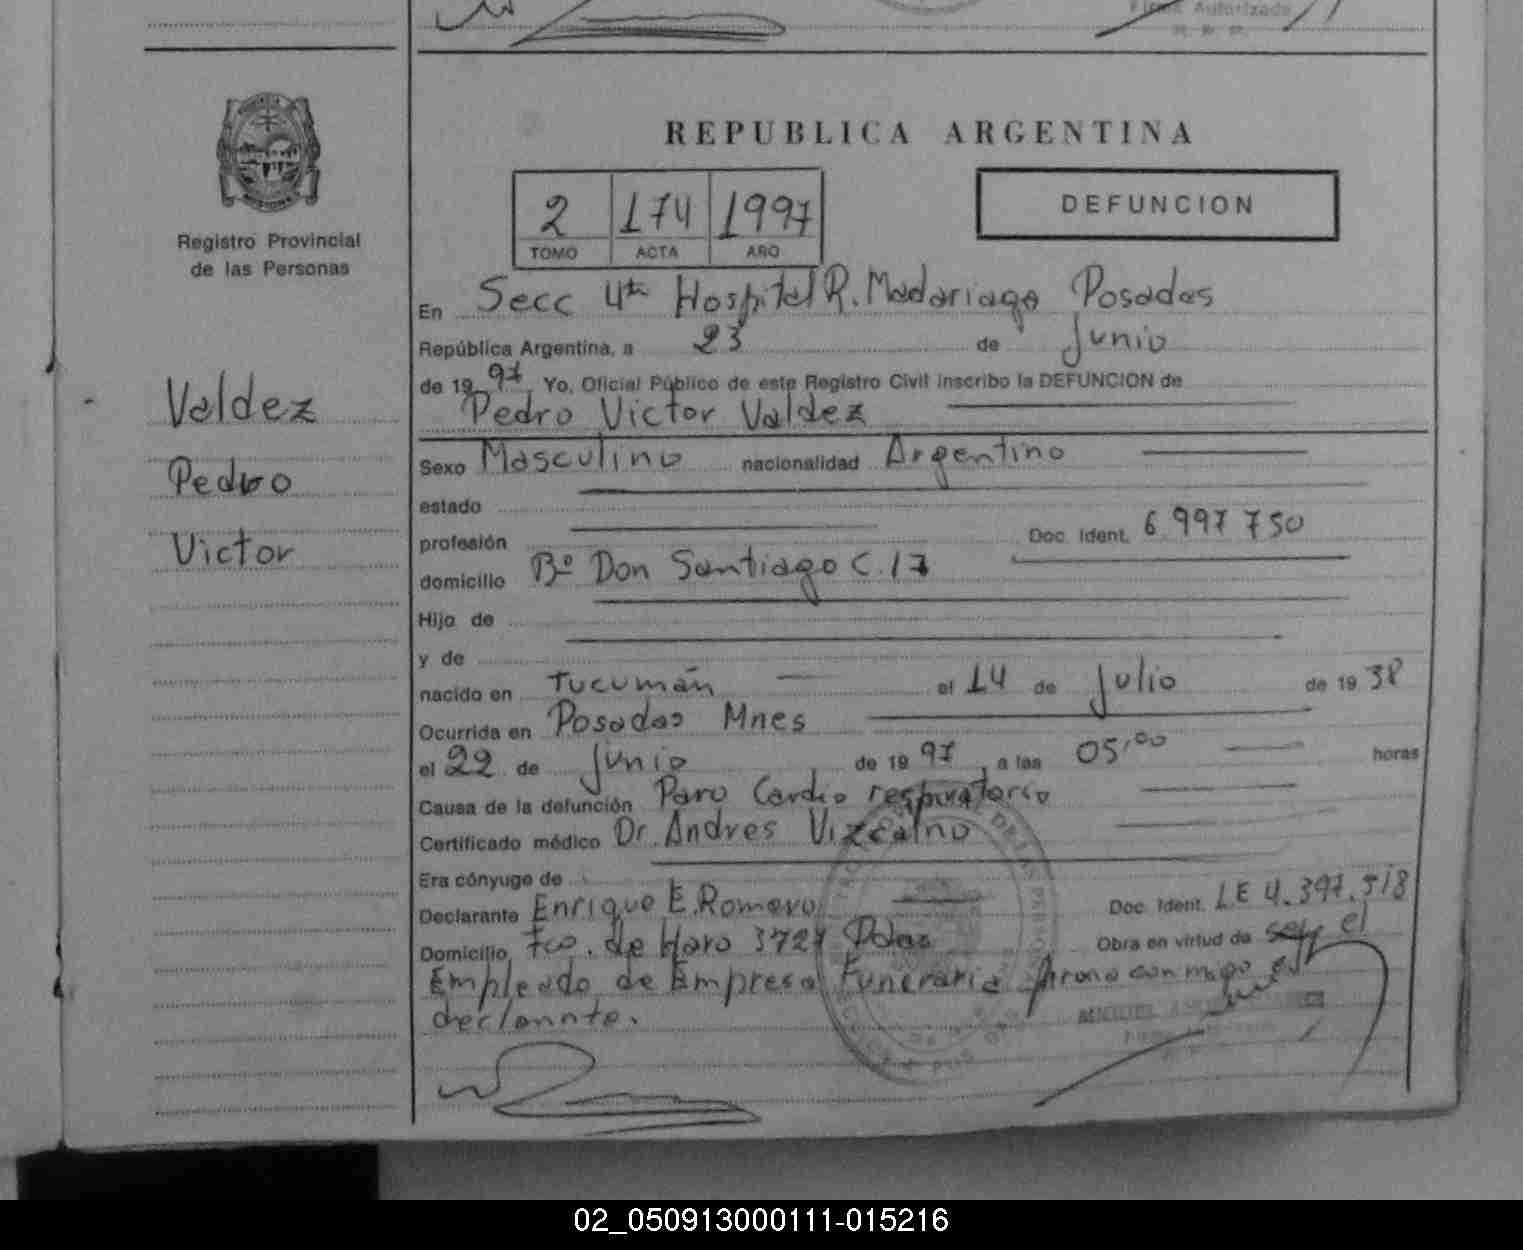 Firma Autorizada
R. P. P.
REPUBLICA ARGENTINA
2 174 1997
TOMO ACTA AÑO
DEFUNCION
Registro Provincial
de las Personas
Valdez
Pedro
Victor
En Secc 4ta Hospital R. Madariaga Posadas
República Argentina, a 23 de Junio
de 19 97 Yo, Oficial Público de este Registro Civil inscribo la DEFUNCION de
Pedro Victor Valdez
Sexo Masculino nacionalidad Argentino
estado
profesión Doc. Ident. 6 997 750
domicilio Bº Don Santiago C. 17
Hijo de
y de
nacido en Tucumán el 14 de Julio de 19 38
Ocurrida en Posadas Mnes
el 22 de Junio de 19 97 a las 05,00 horas
Causa de la defunción Paro Cardio respiratorio
Certificado médico Dr. Andres Vizcaino
Era cónyuge de
Declarante Enrique E. Romero Doc. Ident. LE 4.397.518
Domicilio Fco. de Haro 3727 Pdas Obra en virtud de ser el
Empleado de Empresa Funeraria firma conmigo el
declarante.
02_050913000111-015216